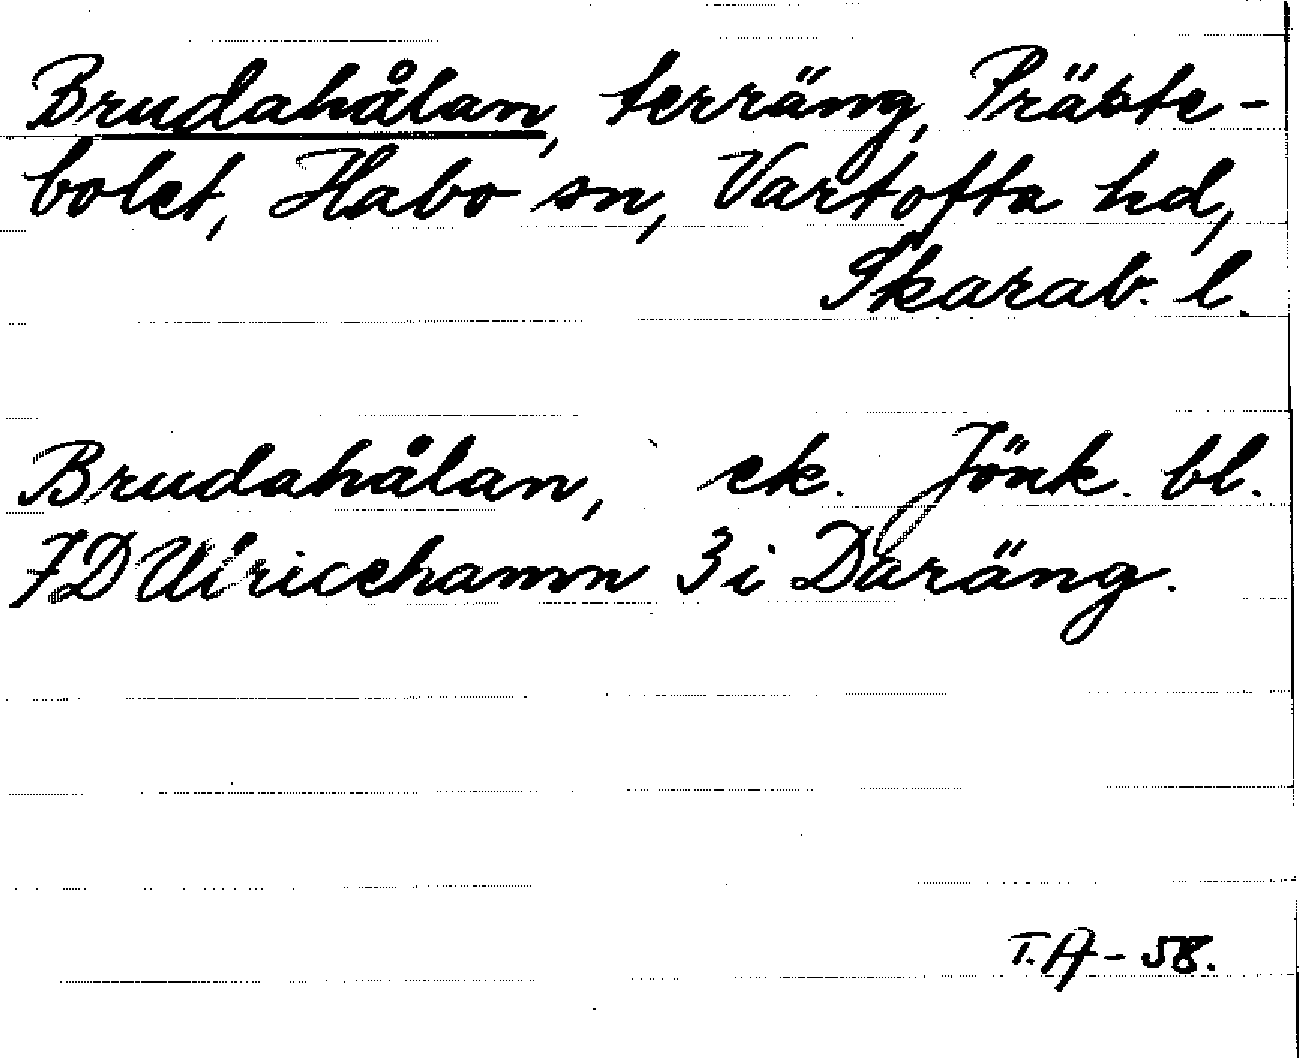 Brudahålan, terräng, Präste-
bolet, Habo sn, Vartofta hd,
Skarab. l.
Brudahålan, ek. Jönk. bl.
7D Ulricehamn 3i Daräng.
T.A-58.